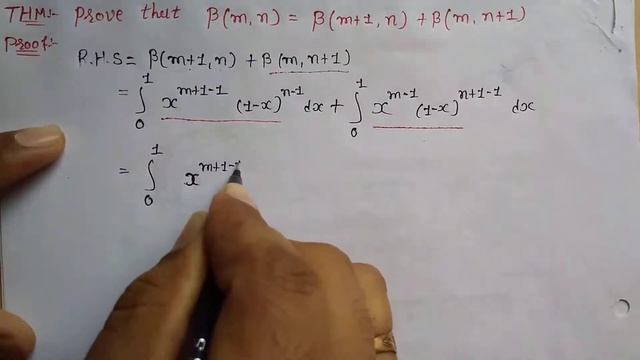 THM:- Prove that β(m, n) = β(m+1, n) + β(m, n+1)
Proof:-
R.H.S = β(m+1, n) + β(m, n+1)
= ∫₀¹ x^{m+1-1} (1-x)^{n-1} dx + ∫₀¹ x^{m-1} (1-x)^{n+1-1} dx
= ∫₀¹ x^{m+1-1}